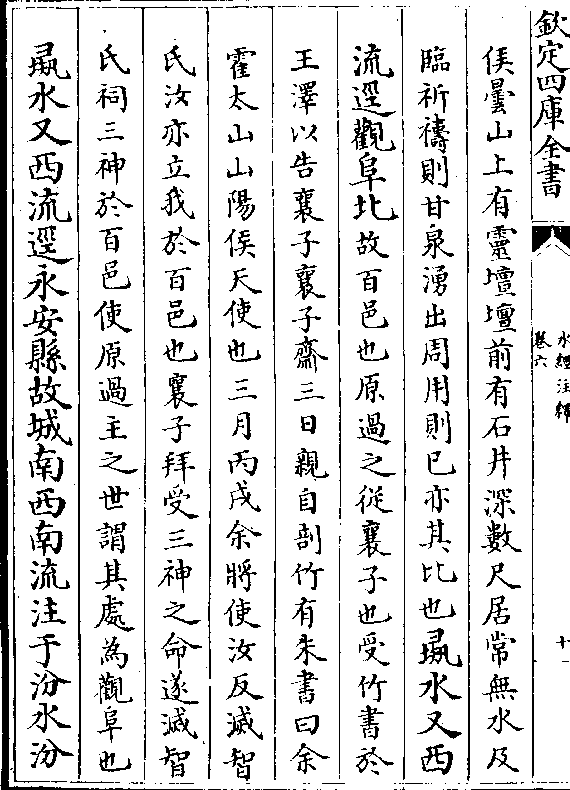 欽定四庫全書
水經注釋
卷六
十一
侯曇山上有靈壇壇前有石井深數尺居常無水及
臨祈禱則甘泉湧出周用則已亦其比也彘水又西
流逕觀阜北故百邑也原過之從襄子也受竹書於
王澤以告襄子襄子齋三日親自剖竹有朱書曰余
霍太山山陽侯天使也三月丙戌余將使汝反滅智
氏汝亦立我於百邑也襄子拜受三神之命遂滅智
氏祠三神於百邑使原過主之世謂其處為觀阜也
彘水又西流逕永安縣故城南西南流注于汾水汾